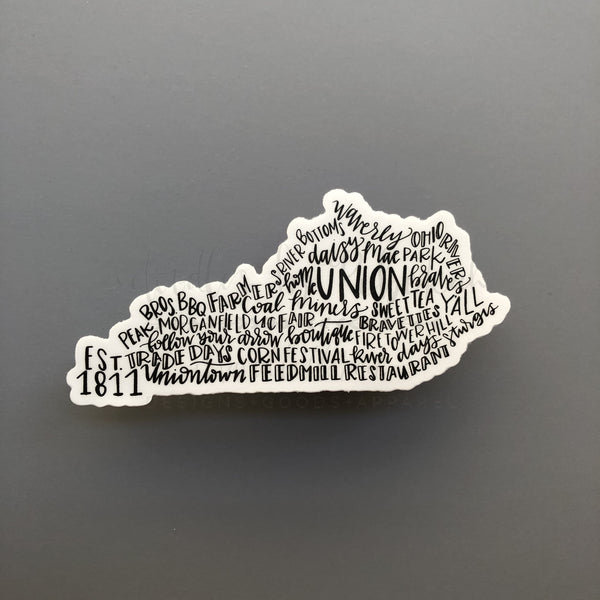 Waverly
RIVER BOTTOMS
daisy mae PARK
OHIO RIVER
home
UNION braves
PEAK BROS BBQ FARMERS Coal miners SWEET TEA Y'ALL
MORGANFIELD UC FAIR BRAVETTES sturgis
follow your arrow boutique FIRE TOWER HILL
EST. TRADE DAYS CORN FESTIVAL river days
1811 Uniontown FEEDMILL RESTAURANT
DESIGNS+GOODS+APPAREL